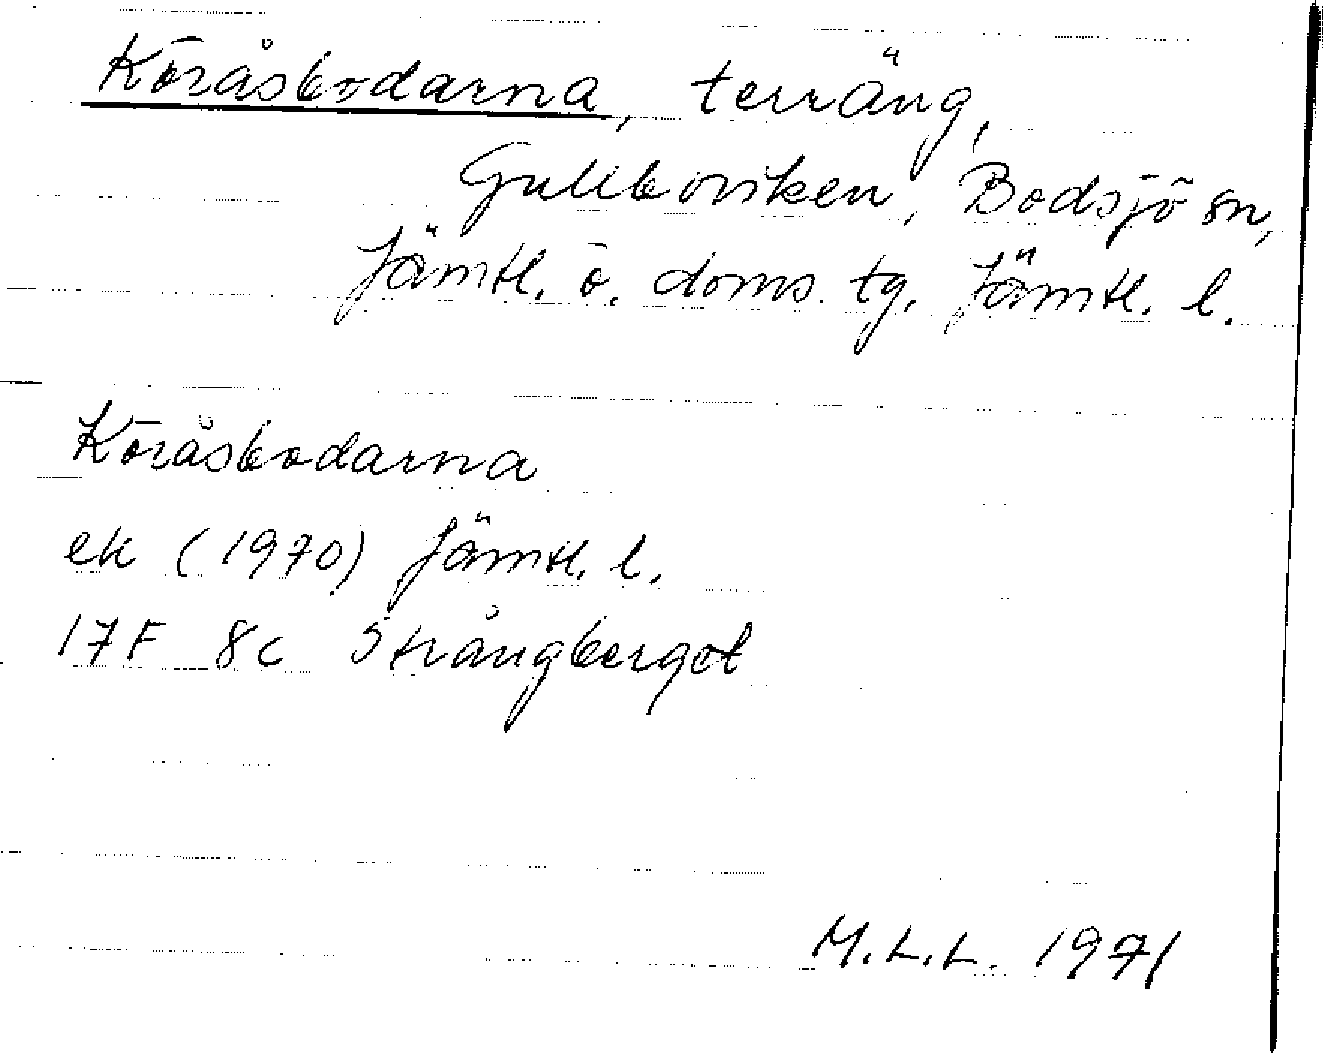 Köråsbodarna, terräng,
Gullboviken, Bodsjö sn,
Jämtl. ö. doms. tg. Jämtl. l.
Köråsbodarna
ek (1970) Jämtl. l.
17F 8c Strångberget
M.L.L. 1971